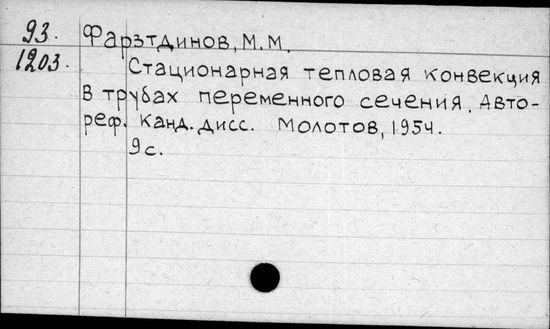 93. Фарзтдинов, М.М.
1203. Стационарная тепловая конвекция
в трубах переменного сечения. Авто-
реф. канд. дисс. Молотов, 1954.
9с.